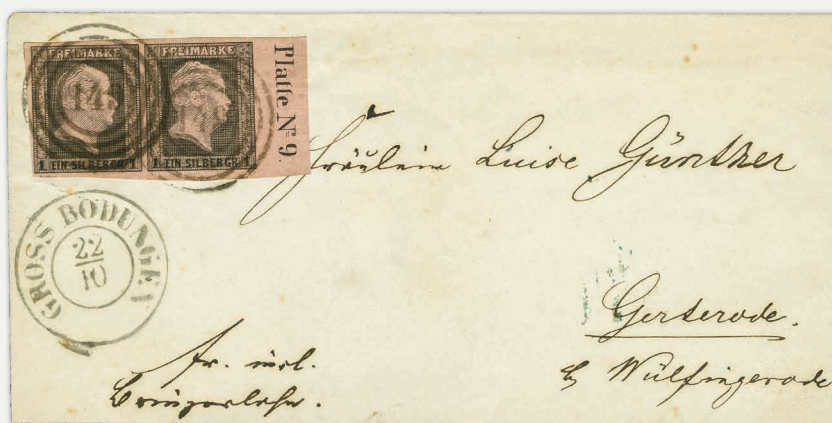 FREIMARKE FREIMARKE
1 EIN SILBERGR. 1 1 EIN SILBERGR. 1
Platte Nº 9.
GROSS BODUNGEN
22
10
Fräulein Luise Günther
Gerterode.
b/ Wülfingerode
fr. incl.
Bringerlohn.